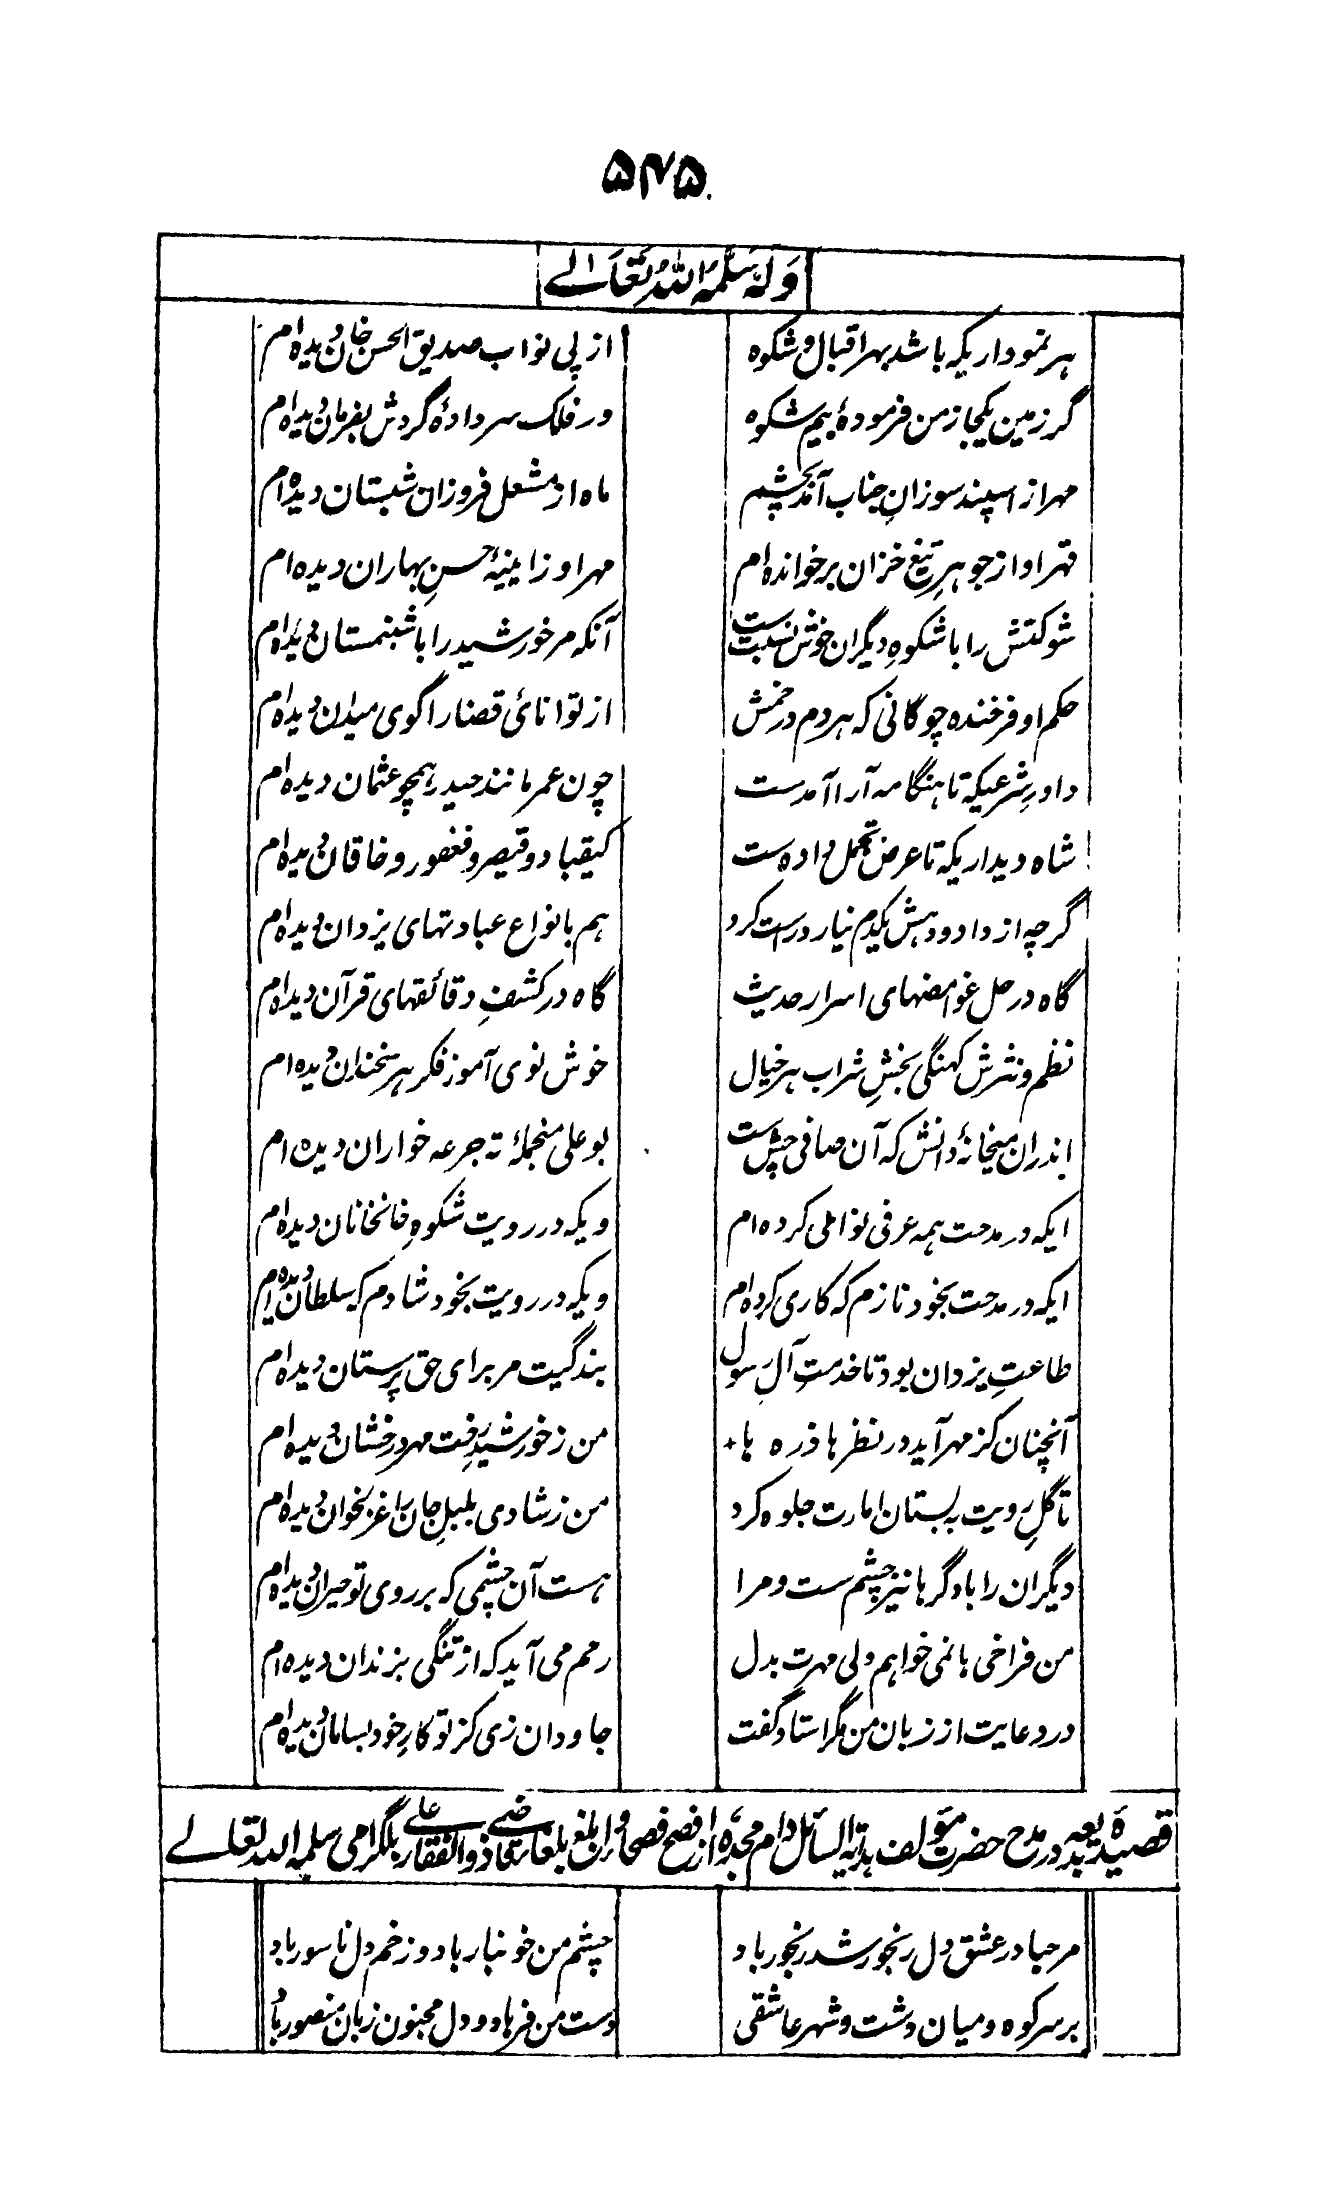 ۵۴۵
وَلَهُ سَلَّمَهُ اللهُ تَعَالے
هر نموداریکه باشد بهر اقبال و شکوه از پی نواب صدیق الحسن خان دیده‌ام
گر زمین یکجا ز من فرمودهٔ بیم شکوه ور فلک سر دادهٔ گردش بفرمان دیده‌ام
مهر از اسپند سوزانِ جناب آمد بچشم ماه از مشعل فروزان شبستان دیده‌ام
قهر او از جوهرِ تیغ خزان برخوانده‌ام مهر او ز ایینهٔ حسنِ بهاران دیده‌ام
شوکتش را با شکوهِ دیگران خوش نسبت ست آنکه مر خورشید را با شبنمستان دیده‌ام
حکم او فرخنده چوگانی که هر دم در خمش از توانائ قضا را گوی میدان دیده‌ام
داور شرعیکه تا هنگامه آرا آمدست چون عمر مانند حیدر همچو عثمان دیده‌ام
شاه دیداریکه تا عرض تجمل داده ست کیقباد و قیصر و فغفور و خاقان دیده‌ام
گرچه از داد و دهش یکدم نیارد راست کرد هم بانواع عبادتهای یزدان دیده‌ام
گاه در حل غوامضهای اسرار حدیث گاه در کشفِ دقائقهای قرآن دیده‌ام
نظم و نثرش کهنگی بخشِ شراب هر خیال خوش نوی آموز فکر هر سخندان دیده‌ام
اندران میخانهٔ دانش که آن صافی چش ست بو علی منجملهٔ ته جرعه خواران دیده ام
ایکه در مدحت همه عرفی نوا ملی کرده ام ویکه در رویت شکوهِ خانخانان دیده‌ام
ایکه در مدحت بخود نازم که کاری کرده‌ام ویکه در رویت بخود شادم که سلطان دیده‌ام
طاعتِ یزدان بود تا خدمتِ آلِ رسول بندگیت مر برای حق پرستان دیده‌ام
آنچنان کز مهر آید در نظرها ذره ها من ز خورشیدِ رخت مهر درخشان دیده‌ام
تا گلِ رویت به بستان امارت جلوه کرد من ز شادی بلبلِ جان را غزلخوان دیده‌ام
دیگران را با دگرها نیز چشم ست و مرا هست آن چشمی که بر روی تو حیران دیده‌ام
من فراخی ها نمی خواهم ولی مهرت بدل رحم می آید که از تنگی بزندان دیده ام
در دعایت از زبان من مگر استاد گفت جاودان زی کز تو کارِ خود بسامان دیده‌ام
قصیدهٔ بدیعه در مدح حضرت مؤلف هدایة السائل دام مجده از افصح فصحای دوران ابلغ بلغای زمان قاضی ذوالفقار علی بلگرامی سلمه الله تعالے
مرحبا در عشق دل رنجور شد رنجور باد چشم من خونبار باد و زخم دل ناسور باد
بر سر کوه و میان دشت و شهر عاشقی دست من فرهاد و دل مجنون زبان منصور باد